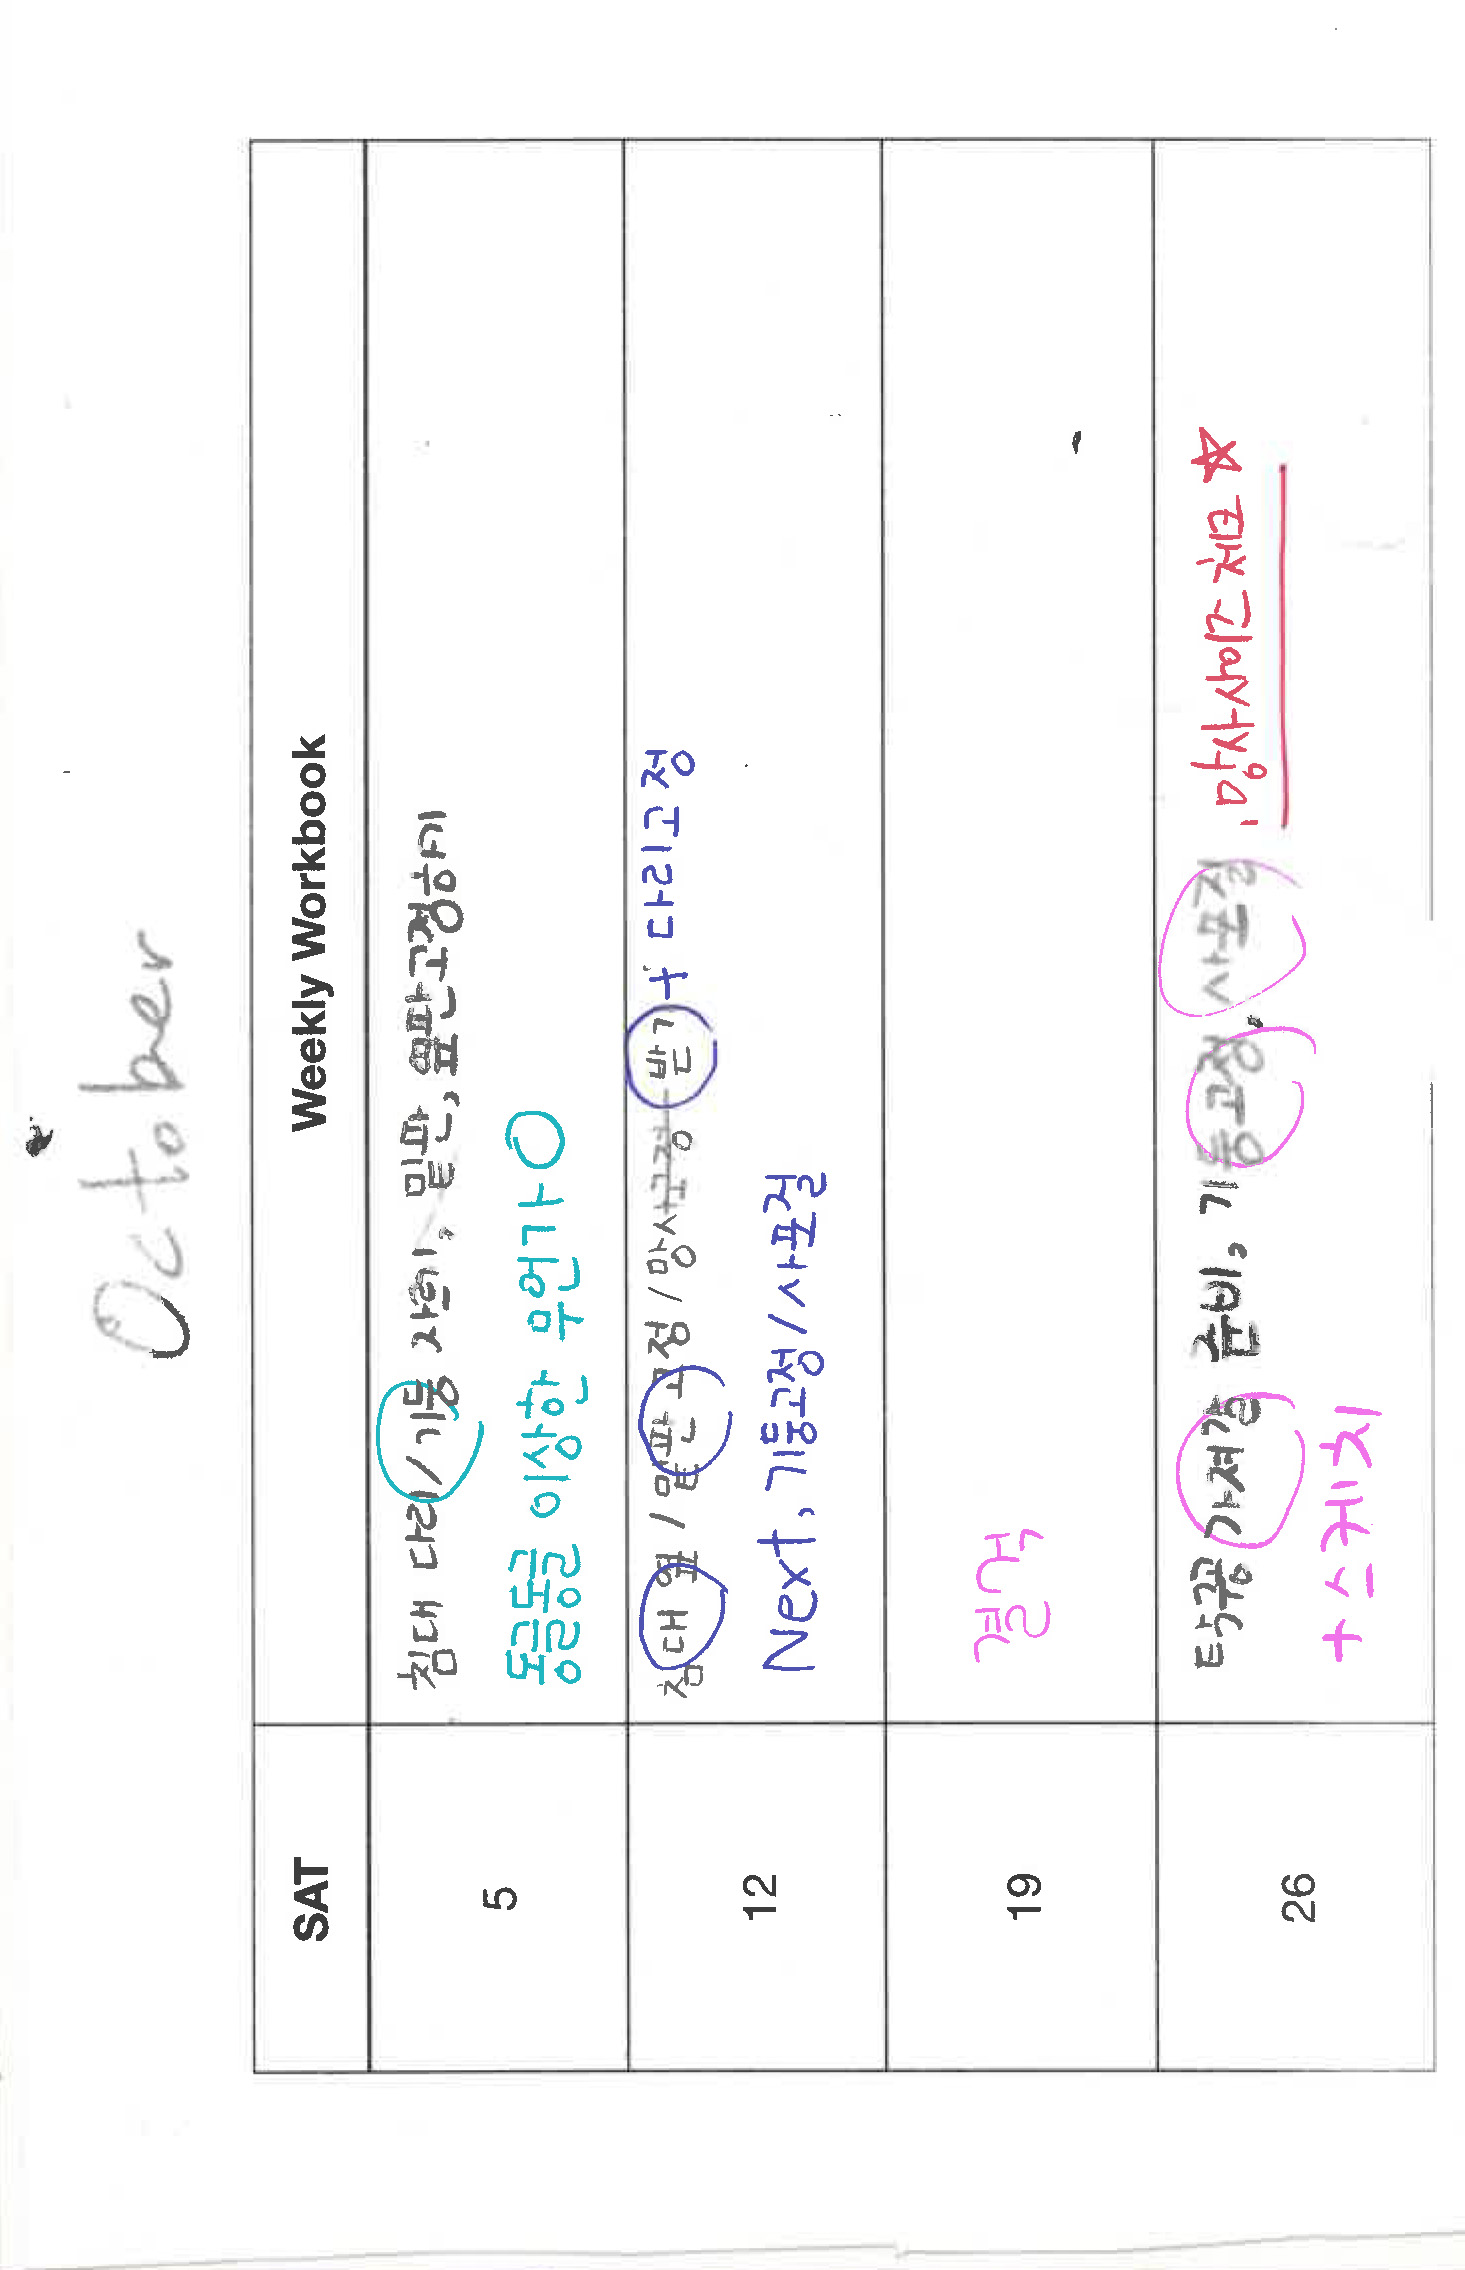 October
SAT Weekly Workbook
5 침대 다리/기둥 자르기, 밑판, 옆판고정하기
동글동글 이상한 무언가 O
12 침대 옆/밑판 고정/망사고정 받기 + 다리고정
Next, 기둥고정/사포질
19
26 탁구공 가져감 준비, 기둥고정,
+ 스케치